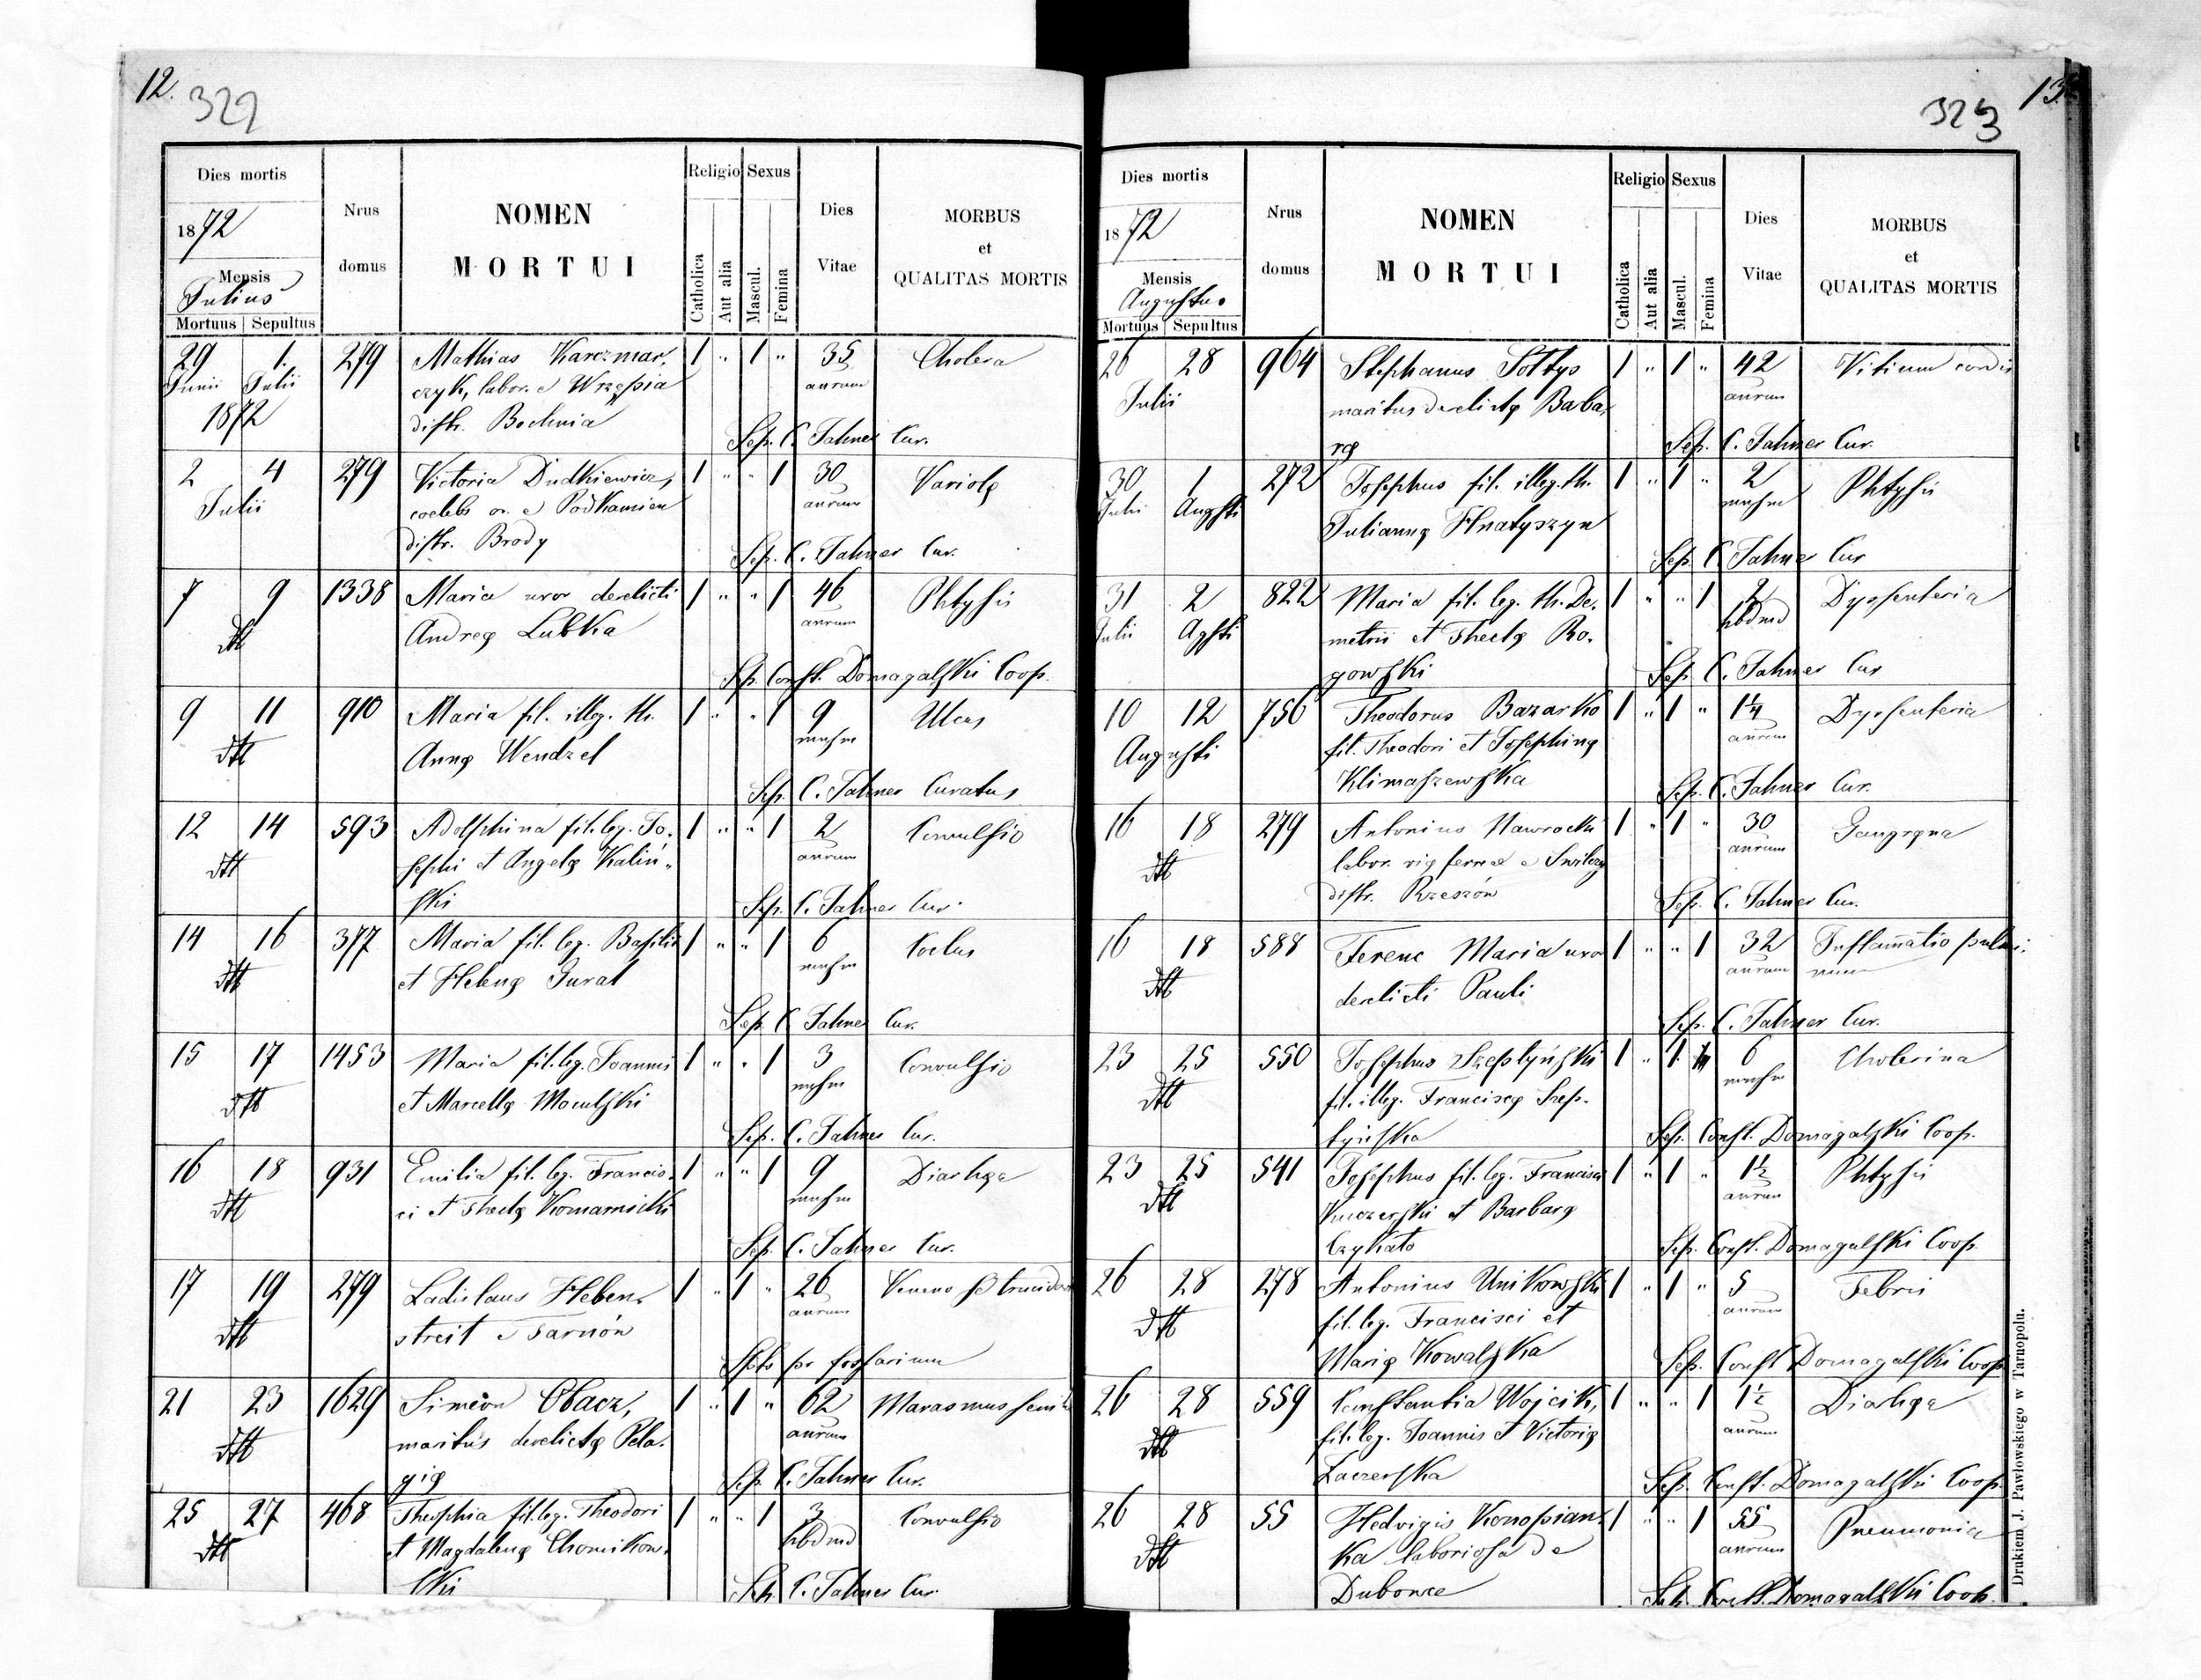 12.
322
Dies mortis
1872
Mensis
Julius
Mortuus Sepultus
Nrus
domus
NOMEN
MORTUI
Religio
Catholica
Aut alia
Sexus
Mascul.
Femina
Dies
Vitae
MORBUS
et
QUALITAS MORTIS
29 1. 279 Mathias Karczmar- 1 " 1 " 35 Cholera
Junii Julii czyk, labor. e Wrzępia annorum
1872 distr. Bochnia
Sep. C. Jahner Cur.
2 4 279 Victoria Dudkiewicz, 1 " " 1 30 Variolę
Julii coelebs or. e Podkamien annorum
distr. Brody
Sep. C. Jahner Cur.
7 9 1338 Maria uxor derelicti 1 " " 1 46 Phtysis
dtt Andreę Lubka annorum
Sep. Const. Domagalski Coop.
9 11 910 Maria fil. illeg. th. 1 " " 1 9 Ulcus
dtt Annę Wendzel mnsm
Sep. C. Jahner Curatus
12 14 593 Adolphina fil. leg. Jo- 1 " " 1 2 Convulsio
dtt sephi et Angelę Kaliń- annorum
ski
Sep. C. Jahner Cur.
14 16 377 Maria fil. leg. Basilii 1 " " 1 6
dtt et Helenę Gural mnsm
Sep. C. Jahner Cur.
15 17 1453 Maria fil. leg. Joannis 1 " " 1 3 Convulsio
dtt et Marcellę Moculski mnsm
Sep. C. Jahner Cur.
16 18 931 Emilia fil. leg. Francis- 1 " " 1 9 Diarhęa
dtt ci et Theclę Komarnicki mnsm
Sep. C. Jahner Cur.
17 19 279 Ladislaus Heben- 1 " 1 " 26 Veneno se
dtt streit e Tarnów annorum
Spls pr fossarium
21 23 1629 Simeon Obacz, 1 " 1 " 62 Marasmus senilis
dtt maritus derelictę Pela- annorum
gię
Sep. C. Jahner Cur.
25 27 468 Theophia fil. leg. Theodori 1 " " 1 3 Convulsio
dtt et Magdalenę Chomikow- hbdmd
ski
Sep. C. Jahner Cur.
13.
323
Dies mortis
1872
Mensis
Augustus
Mortuus Sepultus
Nrus
domus
NOMEN
MORTUI
Religio
Catholica
Aut alia
Sexus
Mascul.
Femina
Dies
Vitae
MORBUS
et
QUALITAS MORTIS
26 28 964 Stephanus Sołtys 1 " 1 " 42 Vitium cordis
Julii maritus derelictę Baba- annorum
rę
Sep. C. Jahner Cur.
30 1 272 Josephus fil. illeg. th. 1 " 1 " 2 Phtysis
Julii Augsti Juliannę Hnatyszyn mnsm
Sep. C. Jahner Cur
31 2 822 Maria fil. leg. th. De- 1 " " 1 2 Dyssenteria
Julii Agsti metrii et Theclę Ro- hbdmd
gowski
Sep. C. Jahner Cur
10 12 756 Theodorus Bazarko 1 " 1 " 1¼ Dyssenteria
Augusti fil. Theodori et Josephinę annorum
Klimaszewska
Sep. C. Jahner Cur.
16 18 279 Antonius Nawrocki 1 " 1 " 30 Gangręna
dtt labor. vię ferreę e Swilczy annorum
distr. Rzeszów
Sep. C. Jahner Cur.
16 18 588 Ferenc Maria uxor 1 " " 1 32 Inflam̄atio pulmo-
dtt derelicti Pauli annorum num
Sep. C. Jahner Cur.
23 25 550 Josephus Szeptyński 1 " 1 6 Cholerina
dtt fil. illeg. Franciscę Szep- mnsm
tyńska
Sep. Const. Domagalski Coop.
23 25 541 Josephus fil. leg. Francisci 1 " 1 " 1½ Phtysis
dtt Kuczerski et Barbarę annorum
Czykato
Sep. Const. Domagalski Coop.
26 28 278 Antonius Unikowski 1 " 1 " 5 Febris
dtt fil. leg. Francisci et annorum
Marię Kowalska
Sep. Const Domagalski Coop.
26 28 559 Constantia Wojcik, 1 " " 1 1½ Diarhęa
dtt fil. leg. Joannis et Victorię annorum
Laczerska
Sep. Const. Domagalski Coop.
26 28 55 Hedvigis Konopian- 1 " " 1 55 Pneumonia
dtt ka laboriosa de annorum
Dubowce
Sep. Const. Domagalski Coop.
Drukiem J. Pawłowskiego w Tarnopolu.